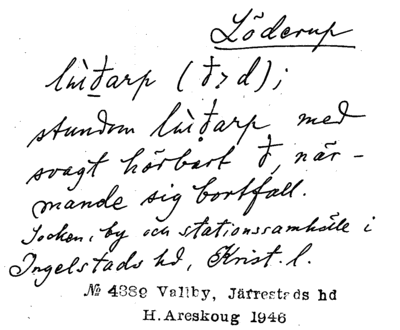 Löderup
lù̀đarp (đ > d);
stundom lùđarp med
svagt hörbart đ, när-
mande sig bortfall.
Socken, by och stationssamhälle i
Ingelstads hd, Krist. l.
№ 4389 Vallby, Järrestads hd
H. Areskoug 1946